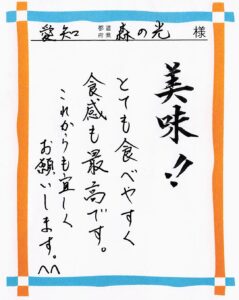 愛知 都道府県 森の光 様
美味!!
とても食べやすく
食感も最高です。
これからも宜しく
お願いします。^^